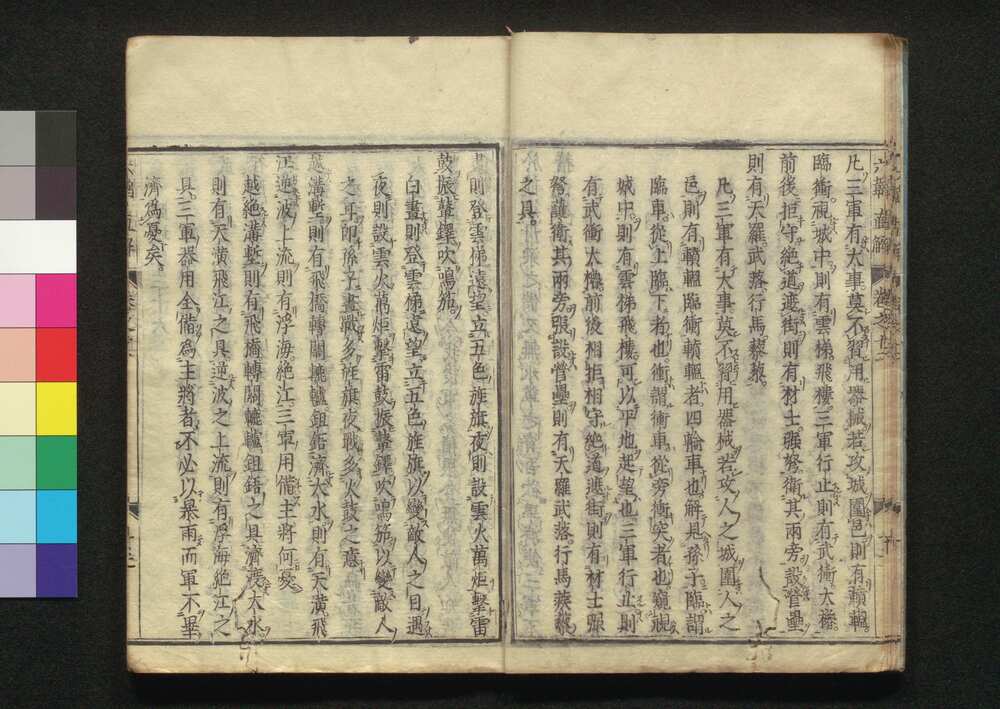 凡三軍有大事莫不習用器械若攻城圍邑則有轒轀
臨衝視城中則有雲梯飛樓三軍行止則有武衝大櫓
前後拒守絶道遮街則有材士强弩衛其兩旁設營壘
則有天羅武落行馬蒺藜
凡三軍有大事莫不習用器械若攻人之城圍人之
邑則有轒轀臨衝轒轀者四輪車也解見孫子臨謂
臨車從上臨下者也衝謂衝車從旁衝突者也窺視
城中則有雲梯飛樓可以平地起望也三軍行止則
有武衝大櫓前後相拒相守絶道遮街則有材士强
弩護衛其兩旁張設營壘則有天羅武落行馬蒺藜
之具
則登雲梯遠望立五色旌旗夜則設雲火萬炬擊雷
鼓振鼙鐸吹鳴笳
白晝則登雲梯遠望立五色旌旗以變敵人之目遇
夜則設雲火萬炬擊雷鼓振鼙鐸吹鳴笳以變敵人
之耳即孫子晝戰多旌旗夜戰多火鼓之意
越溝塹則有飛橋轉關轆轤鉏鋙濟大水則有天潢飛
江逆波上流則有浮海絶江三軍用備主將何憂
越絶溝塹則有飛橋轉關轆轤鉏鋙之具濟渡大水
則有天潢飛江之具逆波之上流則有浮海絶江之
具三軍器用全備爲主將者不必以暴雨而軍不畢
濟爲憂矣